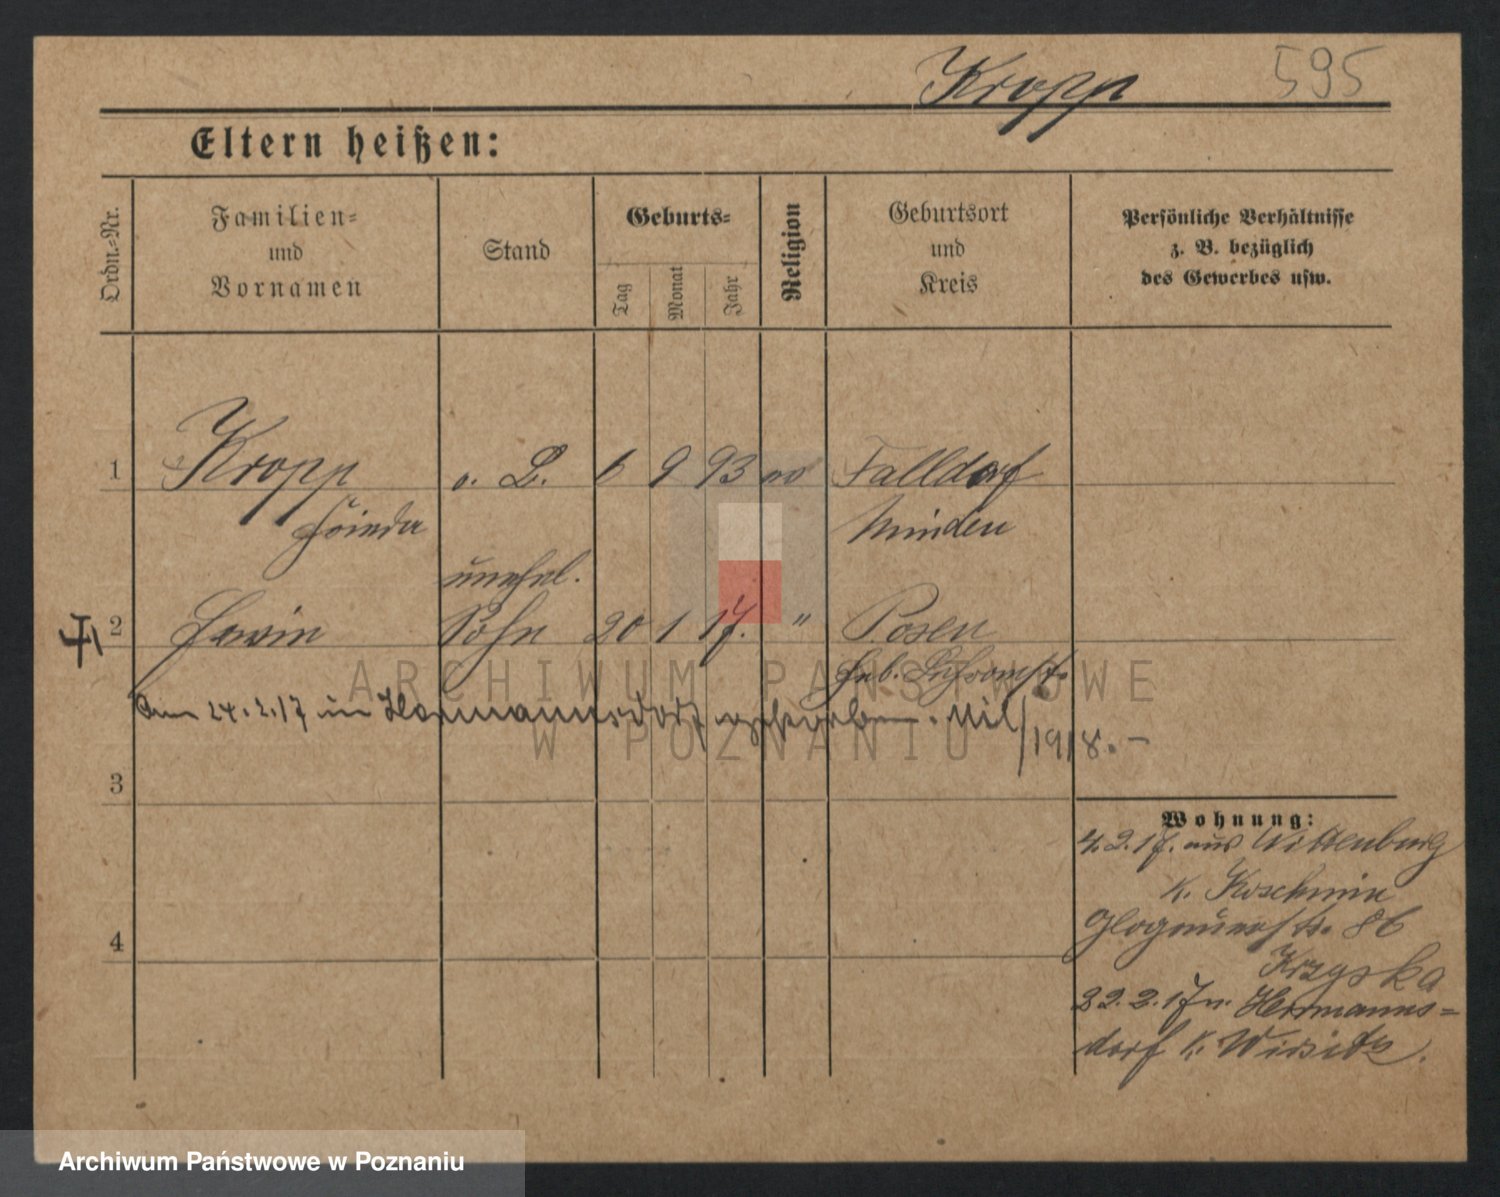 Kropp 595
Eltern heißen:
Ordn.=Nr.
Familien=
und
Vornamen
Stand
Geburts=
Tag
Monat
Jahr
Religion
Geburtsort
und
Kreis
Persönliche Verhältnisse
z. B. bezüglich
des Gewerbes usw.
1 Kropp o. B. 6 9 93 Falldorf
Frieda Minden
unehel.
2 Erwin Sohn 20 1 17. " Posen
Am 24.2.17 in Hermannsdorf /1918.-
3
4
Wohnung:
4.2.17. aus Wittenburg
K. Koschmin
Glogauerstr. 86
Krzyska
22.2.17 n. Hermanns=
dorf K. Wirsitz.
ARCHIWUM PAŃSTWOWE
W POZNANIU
Archiwum Państwowe w Poznaniu